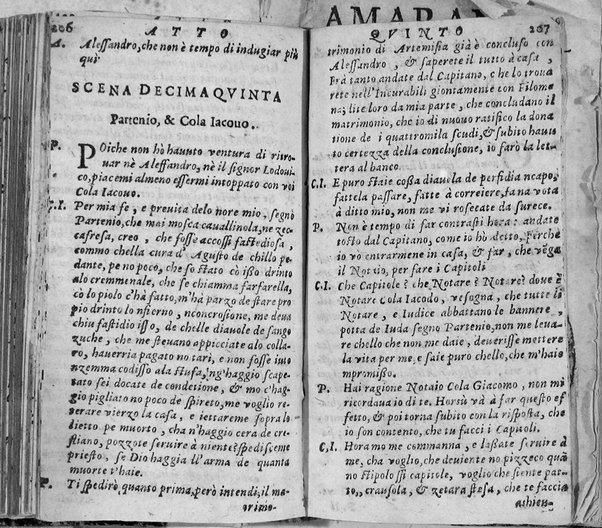 206 ATTO
A. Alessandro, che non è tempo di indugiar più
qui
SCENA DECIMAQVINTA
Partenio, & Cola Iacouo.
P. POiche non hò hauuto ventura di ritro-
uar nè Alessandro, nè il signor Lodoui-
co, piacemi almeno essermi intoppato con voi
Cola Iacouo.
C.I. Per mia fe, e preuita delo nore mio, segnò
Partenio, che mai mosca cauallinola, ne zec-
cafresa, creo, che fosse accossì fastediosa,
commo chella cura d'Agusto de chillo pe-
dante, pe no poco, che so stato cò isso drinto
alo cremmenale, che se chiamma farfarella,
cò lo piolo c'hà fatto, m'hà parzo de stare pro
pio drinto lo nfierno, nconcrosione, me deua
chiu fastidio isso, de chelle diauole de sango
zuche, che me steuano appicciate alo colla-
ro, hauerria pagato no tari, e non fosse iuto
nzemma codisso alla stufa, ng'haggio scape-
tato sei docate de condetione, & mo c'hag-
gio pigliato no poco de spireto, me voglio re-
uerare vierzo la casa, e iettareme sopra lo
lietto pe muorto, cha n'haggio cera de cre-
stiano, pozzote seruire à niente? spedisceme
priesto, se Dio haggia ll'arma de quanta
muorte t'haie.
P. Ti spedirò, quanto prima, però intendi, il ma-
trimo-
AMARAN
QVINTO 207
trimonio di Artemisia già è concluso con
Alessandro, & saperete il tutto à casa,
Frà tanto andate dal Capitano, che lo troua
rete nell'Incurabili giontamente con Filome
na; lite loro da mia parte, che concludano il
matrimonio, che io di nuouo ratifico la dona
tione de i quattromila scudi, & subito hauu
to certezza della conclusione, io farò la let-
tera al banco.
C.I. E puro staie cossa diauola de perfidia ncapo,
fattela passare, fatte à correiere, fa na vota
à ditto mio, non me vi rosecate da surece.
P. Non è tempo di far contrasti hora: andate
tosto dal Capitano, come io hò detto, perche
io vò entrarmene in casa, & far, che vega
il Notio, per fare i Capitoli
C.I. Che Capitole? che Notare? Notare? doue è
Notare Cola Iacouo, vesogna, che tutte li
Notare, e Iudece abbattano le bannere,
potta de Iuda segno Partenio, non me leua-
re chello che non me daie, deuerisse mettere
la vita per me, e saie puro chello, che m'haie
mprommiso.
P. Hai ragione Notaio Cola Giacomo, non mi
ricordaua io di te. Horsù và à far questo ef
fetto, & poi torna subito con la risposta, che
io son contento, che tu facci i Capitoli.
C.I. Hora mo me commanna, e lassate seruire à
me, cha voglio, che deuiente no pizzeco quã
no stipolossi capitole, voglio che siente pat-
to, crausola, & zetara stesa, che te faccia